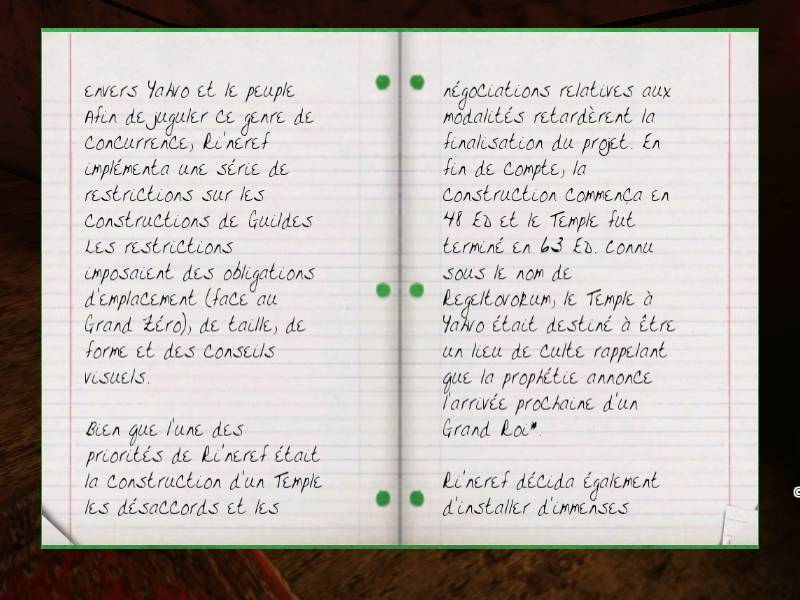 envers Yahvo et le peuple
Afin de juguler ce genre de
concurrence, Ri'neref
implémenta une série de
restrictions sur les
constructions de Guildes
Les restrictions
imposaient des obligations
d'emplacement (face au
Grand Zéro), de taille, de
forme et des conseils
visuels.
Bien que l'une des
priorités de Ri'neref était
la construction d'un Temple
les désaccords et les
négociations relatives aux
modalités retardèrent la
finalisation du projet. En
fin de compte, la
construction commença en
48 ED et le Temple fut
terminé en 63 ED. Connu
sous le nom de
Regeltovokum, le Temple à
Yahvo était destiné à être
un lieu de culte rappelant
que la prophétie annonce
l'arrivée prochaine d'un
Grand Roi*.
Ri'neref décida également
d'installer d'immenses
©